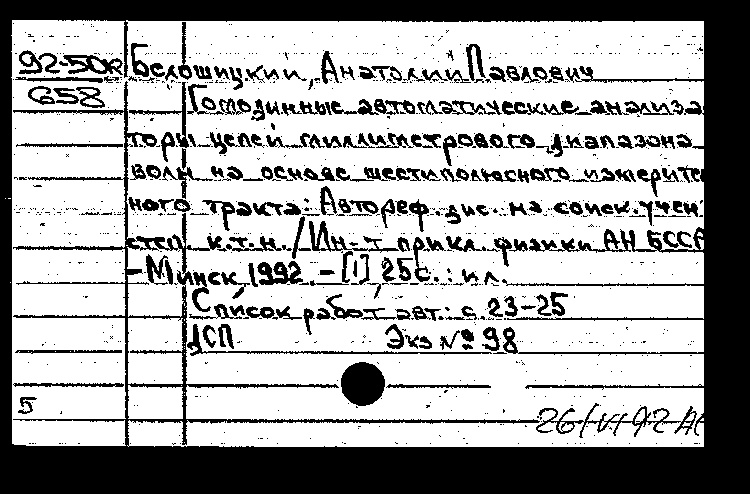 92-50к Белошицкий, Анатолий Павлович
658 Гомодинные автоматические анализа
торы цепей миллиметрового диапазона
волн на основе шестиполюсного измерите
ного тракта: Автореф. дис. на соиск. учен
степ. к.т.н. / Ин-т прикл. физики АН БССР
- Минск, 1992. - [1], 25 с.: ил.
Список работ авт.: с. 23-25
ДСП Экз № 98
5
26/VI 92